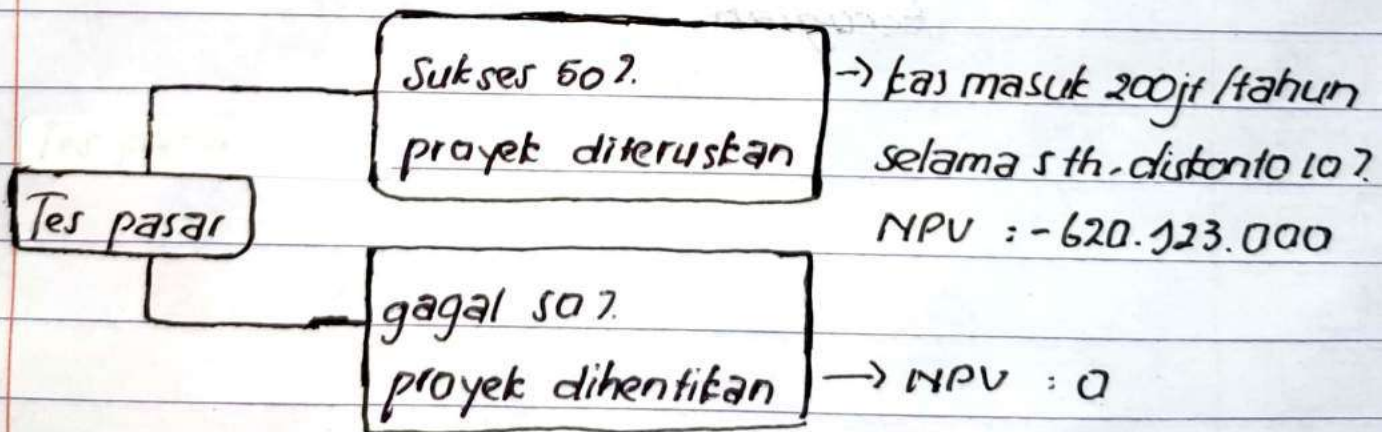 Sukses 50%
proyek diteruskan
→ kas masuk 200jt/tahun
selama 5 th. diskonto 10%
NPV : -620.923.000
Tes pasar
gagal 50%
proyek dihentikan
→ NPV : 0